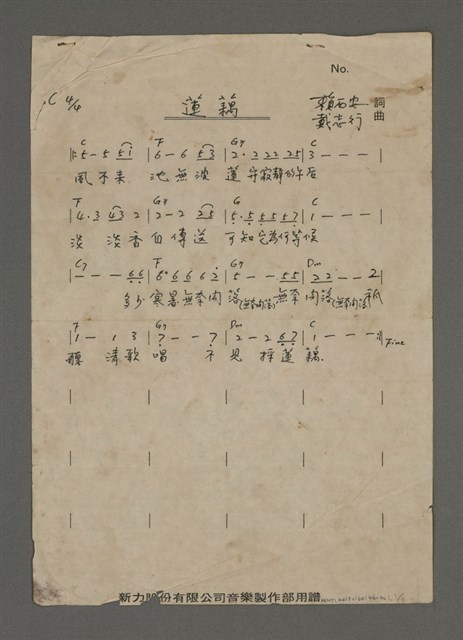 No.
C 4/4 蓮藕 賴西安 詞
戴志行 曲
C F G7 C
5 - 5 5 1 | 6 - 6 5 3 | 2 · 2 2 2 2 5 | 3 - - -
風不來 池無波 蓮子寂靜的午后
F G7 G C
4 · 3 4 3 2 | 2 - 2 2 5 | 5 · 5 5 5 5 7 | 1 - - -
淡 淡香自傳送 可知它為何等候
C7 F G7 Dm
- - - 6 6 | 6 · 6 6 6 2 | 5 - - 5 5 | 2 2 - - 2
多少寒暑無牽掛 無牽 祇
F G7 Dm C
1 - 1 3 | 7 - - 7 | 2 - 2 6 7 | 1 - - - Fine
聽 清歌唱 不見採蓮藕.
新力股份有限公司音樂製作部用譜